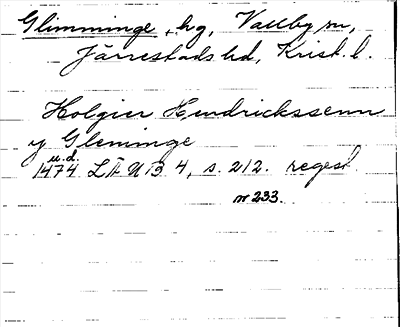 Glimminge, hg, Vallby sn,
Järrestads hd, Krist. l.
Holgier Hendrickssenn
y Gleminge
u.d.
1474 LÄUB 4, s. 212. regest
nr 233.